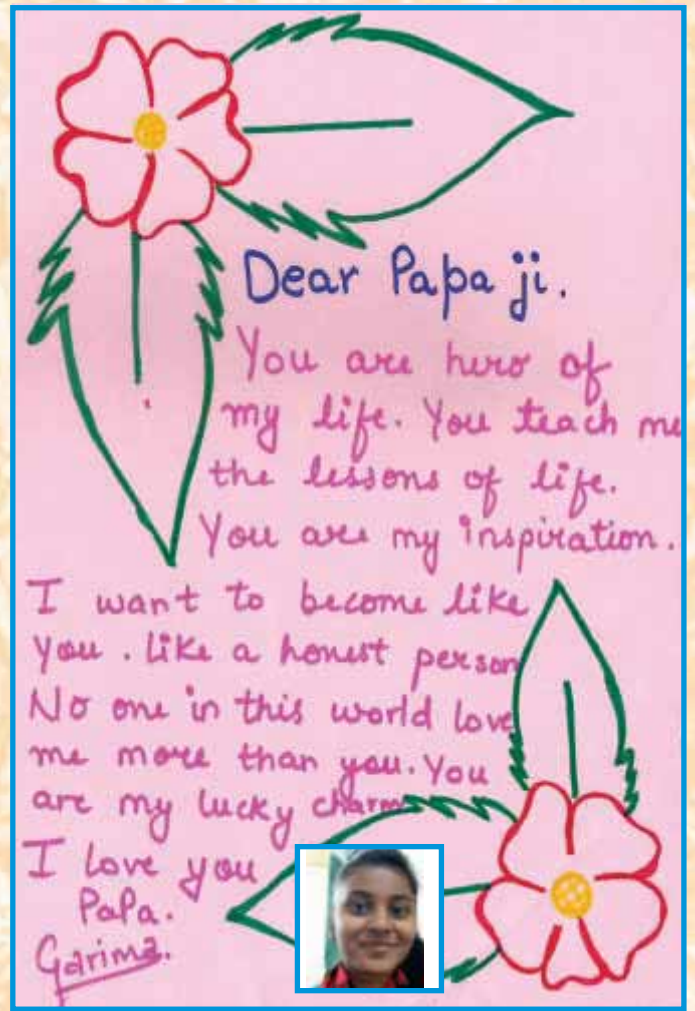 Dear Papa ji.
You are hero of
my life. You teach me
the lessons of life.
You are my inspiration.
I want to become like
you. Like a honest person
No one in this world love
me more than you. You
are my lucky charm
I love you
Papa.
Garima.